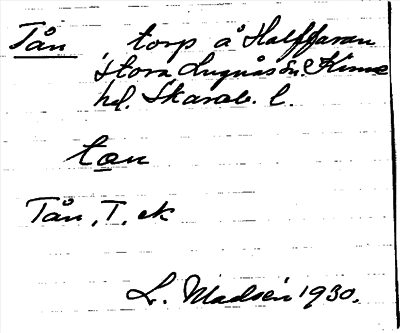 Tån torp å Halffaran
Stora Lugnås sn. Kinne
hd. Skarab. l.
tån
Tån, T. ek
L. Madsén 1930.